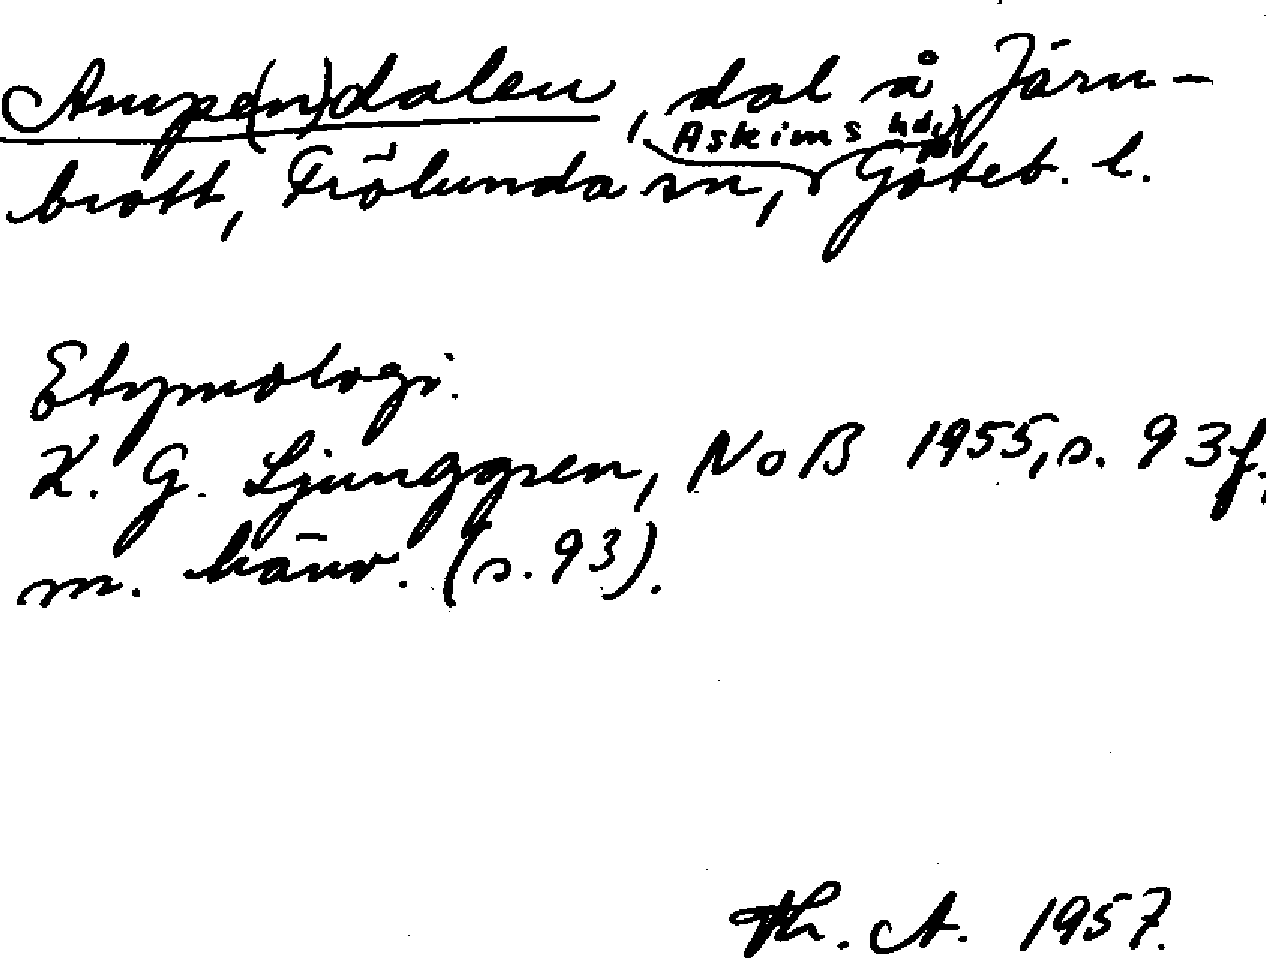 Ampe(n)dalen, dal å Järn-
brott, Frölunda sn, Askims hd, Göteb. l.
Etymologi.
K. G. Ljunggren, NoB 1955, s. 93 f.,
m. hänv. (s. 93).
Th. A. 1957.